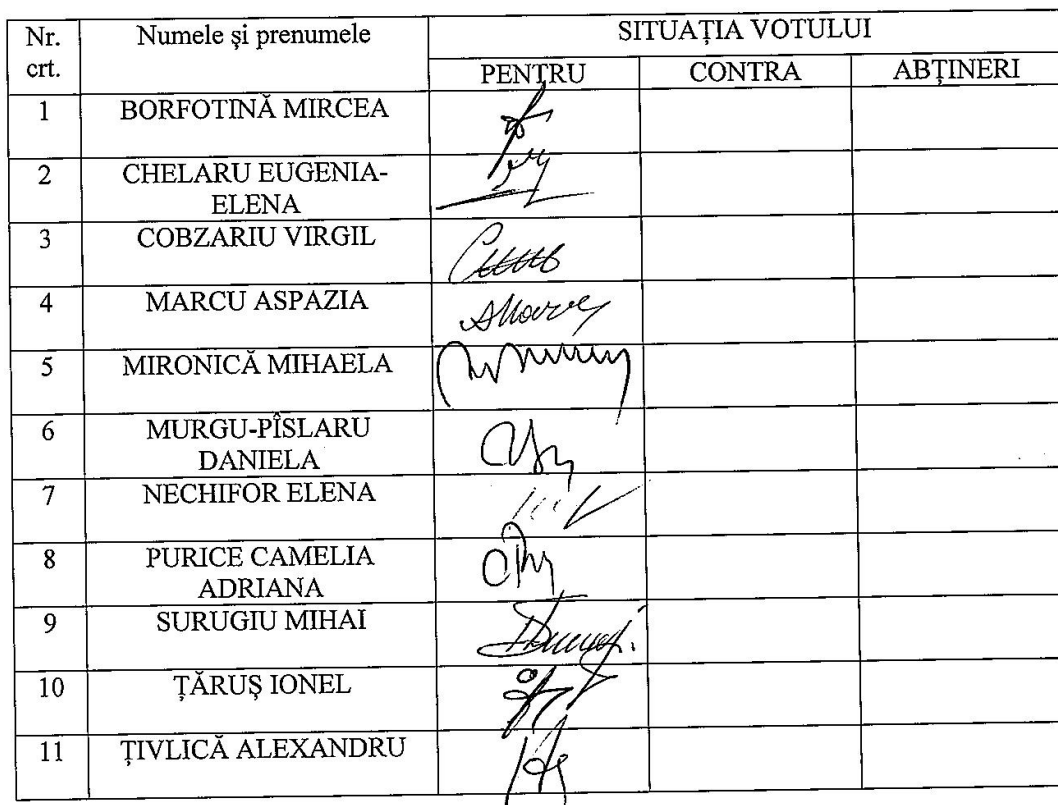 Nr.
crt.
Numele şi prenumele
SITUAŢIA VOTULUI
PENTRU
CONTRA
ABŢINERI
1
BORFOTINĂ MIRCEA
2
CHELARU EUGENIA-
ELENA
3
COBZARIU VIRGIL
4
MARCU ASPAZIA
5
MIRONICĂ MIHAELA
6
MURGU-PÎSLARU
DANIELA
7
NECHIFOR ELENA
8
PURICE CAMELIA
ADRIANA
9
SURUGIU MIHAI
10
ŢĂRUŞ IONEL
11
ŢIVLICĂ ALEXANDRU